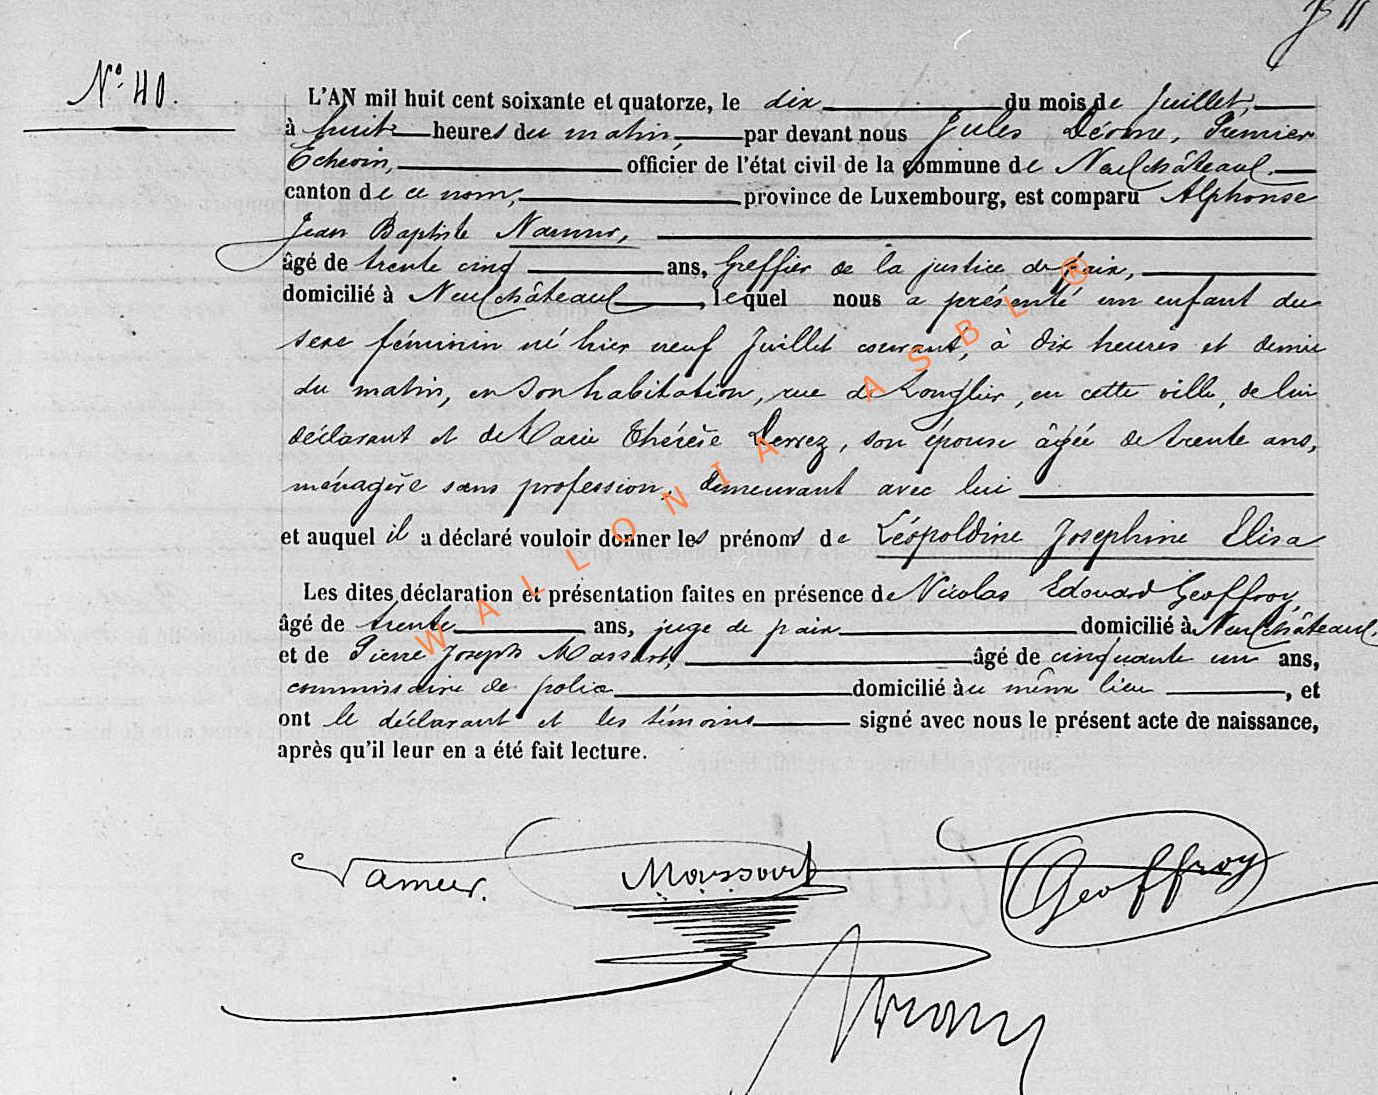 N° 40.
L'AN mil huit cent soixante et quatorze, le dix du mois de Juillet,
à huit heures du matin, par devant nous Jules Dérome, Premier
Echevin, officier de l'état civil de la commune de Neufchâteau,
canton de ce nom, province de Luxembourg, est comparu Alphonse
Jean Baptiste Namur,
âgé de trente cinq ans, Greffier de la justice de paix,
domicilié à Neufchâteau, lequel nous a présenté un enfant du
sexe féminin né hier neuf Juillet courant, à dix heures et demie
du matin, en son habitation, rue de Longlier, en cette ville, de lui
déclarant et de Marie Thérèse son épouse âgée de trente ans,
ménagère sans profession, demeurant avec lui
et auquel il a déclaré vouloir donner les prénoms de Léopoldine Josephine Elisa
Les dites déclaration et présentation faites en présence de Nicolas Edouard Geoffroy,
âgé de trente ans, juge de paix domicilié à Neufchâteau,
et de Pierre Joseph Massart, âgé de cinquante un ans,
commissaire de police domicilié au même lieu, et
ont le déclarant et les témoins signé avec nous le présent acte de naissance,
après qu'il leur en a été fait lecture.
Namur. Massart Geoffroy
WALLONIA ASBL ®